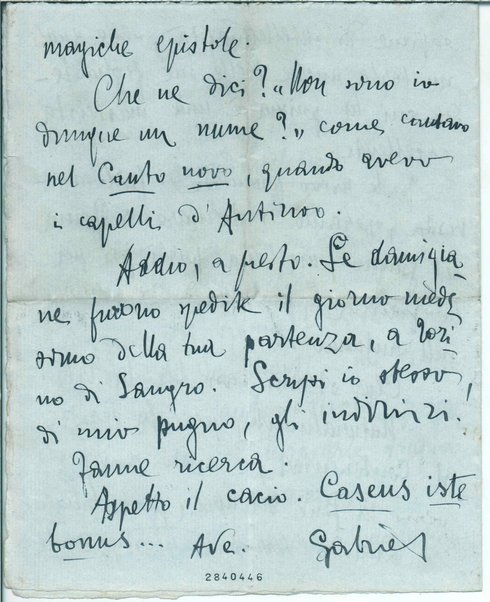 magiche epistole.
Che ne dici? "Non sono io
dunque un nume?" come cantavo
nel Canto novo, quando avevo
i capelli d'Antinoo.
Addio, a presto. Le damigia-
ne furono spedite il giorno mede-
simo della tua partenza, a Tori
no di Sangro. Scrissi io stesso,
di mio pugno, gli indirizzi.
Fanne ricerca.
Aspetto il cacio. Caseus iste
bonus... Ave. Gabriel
2840446